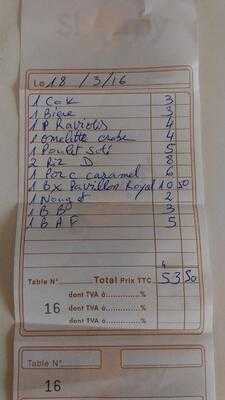 Le 18 / 3 / 16
1 Cok 3
1 Bière 3
1 P Raviolis 4
1 omelette crabe 4
1 Poulet sots 5
2 Riz D 8
1 Porc caramel 6
1 Bx Pavillon Royal 10 50
1 Nougat 2
1 B B 3
1 B A F 5
Table N° Total Prix TTC 53 50
dont TVA à............%
16 dont TVA à............%
dont TVA à............%
Table N°
16